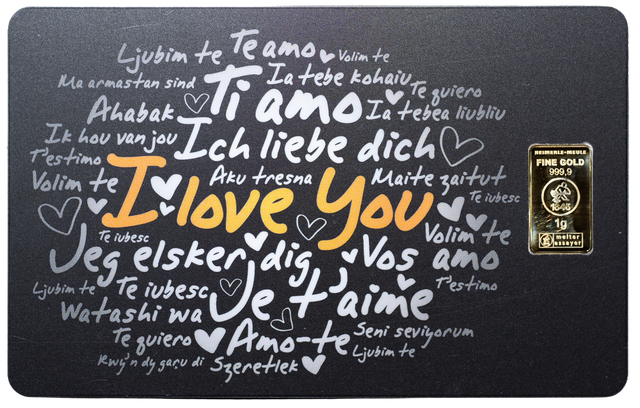 Ljubim te Te amo Volim te
Ma armastan sind Ia tebe kohaiu
Ti amo Te quiero
Ahabak Ia tebea liubliu
Ik hou van jou Ich liebe dich
T'estimo
Volim te I love You Aku tresna Maite zaitut
Te iubesc
Te iubesc Volim te
Jeg elsker dig Vos amo
Ljubim te Te iubesc Je t'aime T'estimo
Watashi wa
Te quiero Amo-te Seni seviyorum
Rwy'n dy garu di Szeretlek Ljubim te
HEIMERLE+MEULE
FINE GOLD
999,9
1845
1g
melter
assayer